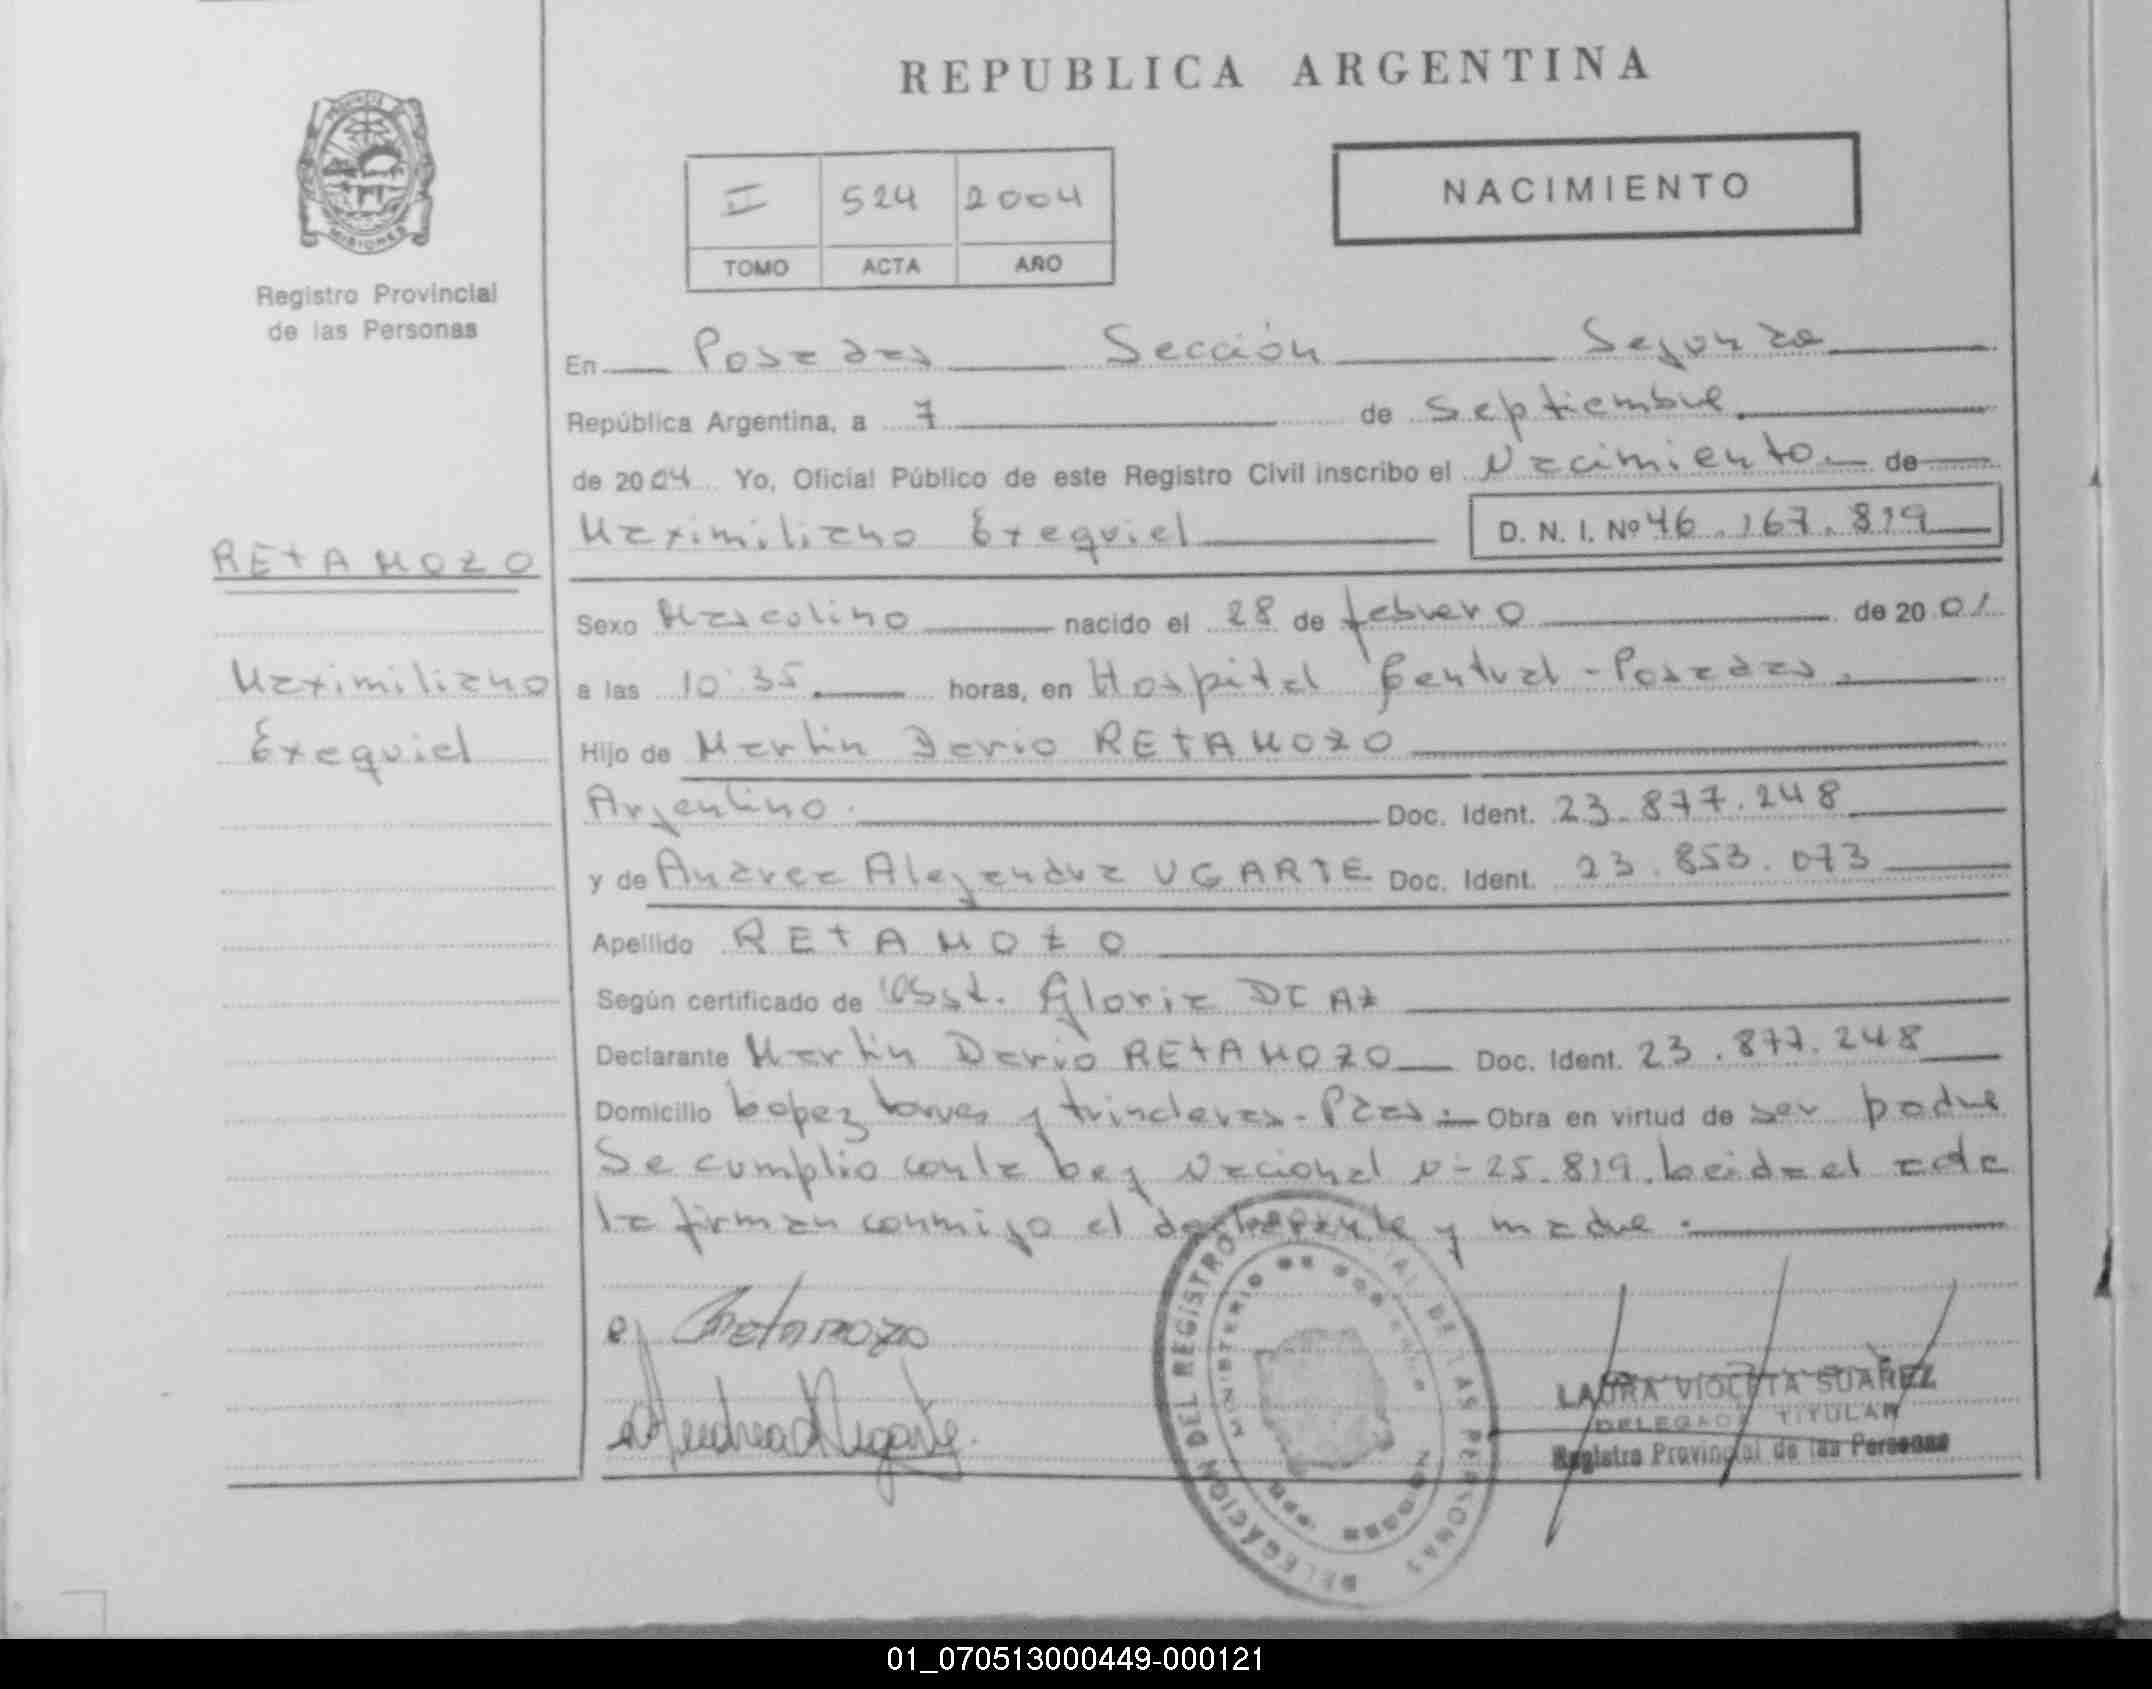 REPUBLICA ARGENTINA
MISIONES
Registro Provincial
de las Personas
II 524 2004
TOMO ACTA AÑO
NACIMIENTO
En Posadas Sección Segunda
República Argentina, a 7 de Septiembre
de 2004 Yo, Oficial Público de este Registro Civil inscribo el Nacimiento de
Maximiliano Exequiel D. N. I. Nº 46.167.819
RETAMOZO
Maximiliano
Exequiel
Sexo Masculino nacido el 28 de febrero de 2001
a las 10:35 horas, en Hospital Central - Posadas.
Hijo de Martin Dario RETAMOZO
Argentino. Doc. Ident. 23.877.248
y de Andrea Alejandra UGARTE Doc. Ident. 23.853.073
Apellido RETAMOZO
Según certificado de Obst. Gloria DIAZ
Declarante Martin Dario RETAMOZO Doc. Ident. 23.877.248
Domicilio Lopez torres y trincheras - Pdas. Obra en virtud de ser padre
Se cumplio con la Ley Nacional Nº 25.819. Leida el acta
la firman conmigo el declarante y madre.
Retamozo
Andrea A Ugarte
DELEGACION DEL REGISTRO PROVINCIAL DE LAS PERSONAS
MINISTERIO DE GOBIERNO
LAURA VIOLETA SUAREZ
DELEGADA TITULAR
Registro Provincial de las Personas
01_070513000449-000121